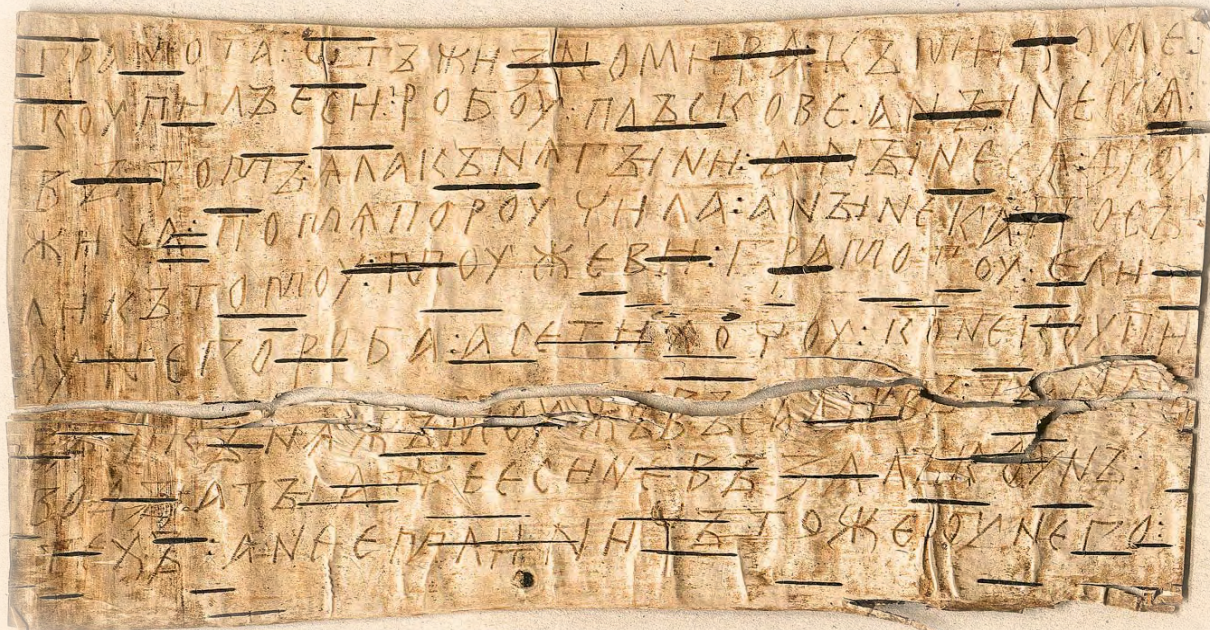 ГРАМОТА : ѠТЪ ЖИЗНОМИРА : КЪ МИКОУЛЕ :
КОУПИЛЪ ЕСИ : РОБОУ : ПЛЪСКОВЕ : А НЪІНЕ МѦ :
ВЪ ТОМЪ : ѦЛА КЪНѦГЪІНИ : А НЪІНЕ СѦ ДРОУ
ЖИНА : ПО МѦ ПОРОУЧИЛА : А НЪІНЕ КА : ПОСЪ
ЛИ КЪ ТОМОУ : МОУЖЕВИ : ГРАМОТОУ : Е ЛИ
ОУ НЕГО РОБА : А СЕ ТИ ХОЧОУ : КОНЕ КОУПИ
КЪНѦЖЪ МОУЖЪ
ВОДЪІ : А ТЪІ АТЧЕ ЕСИ НЕ ВЪЗАЛЪ КОУНЪ
ТЕХЪ : А НЕ ЕМЛИ : НИЧЪТО ЖЕ ОУ НЕГО :